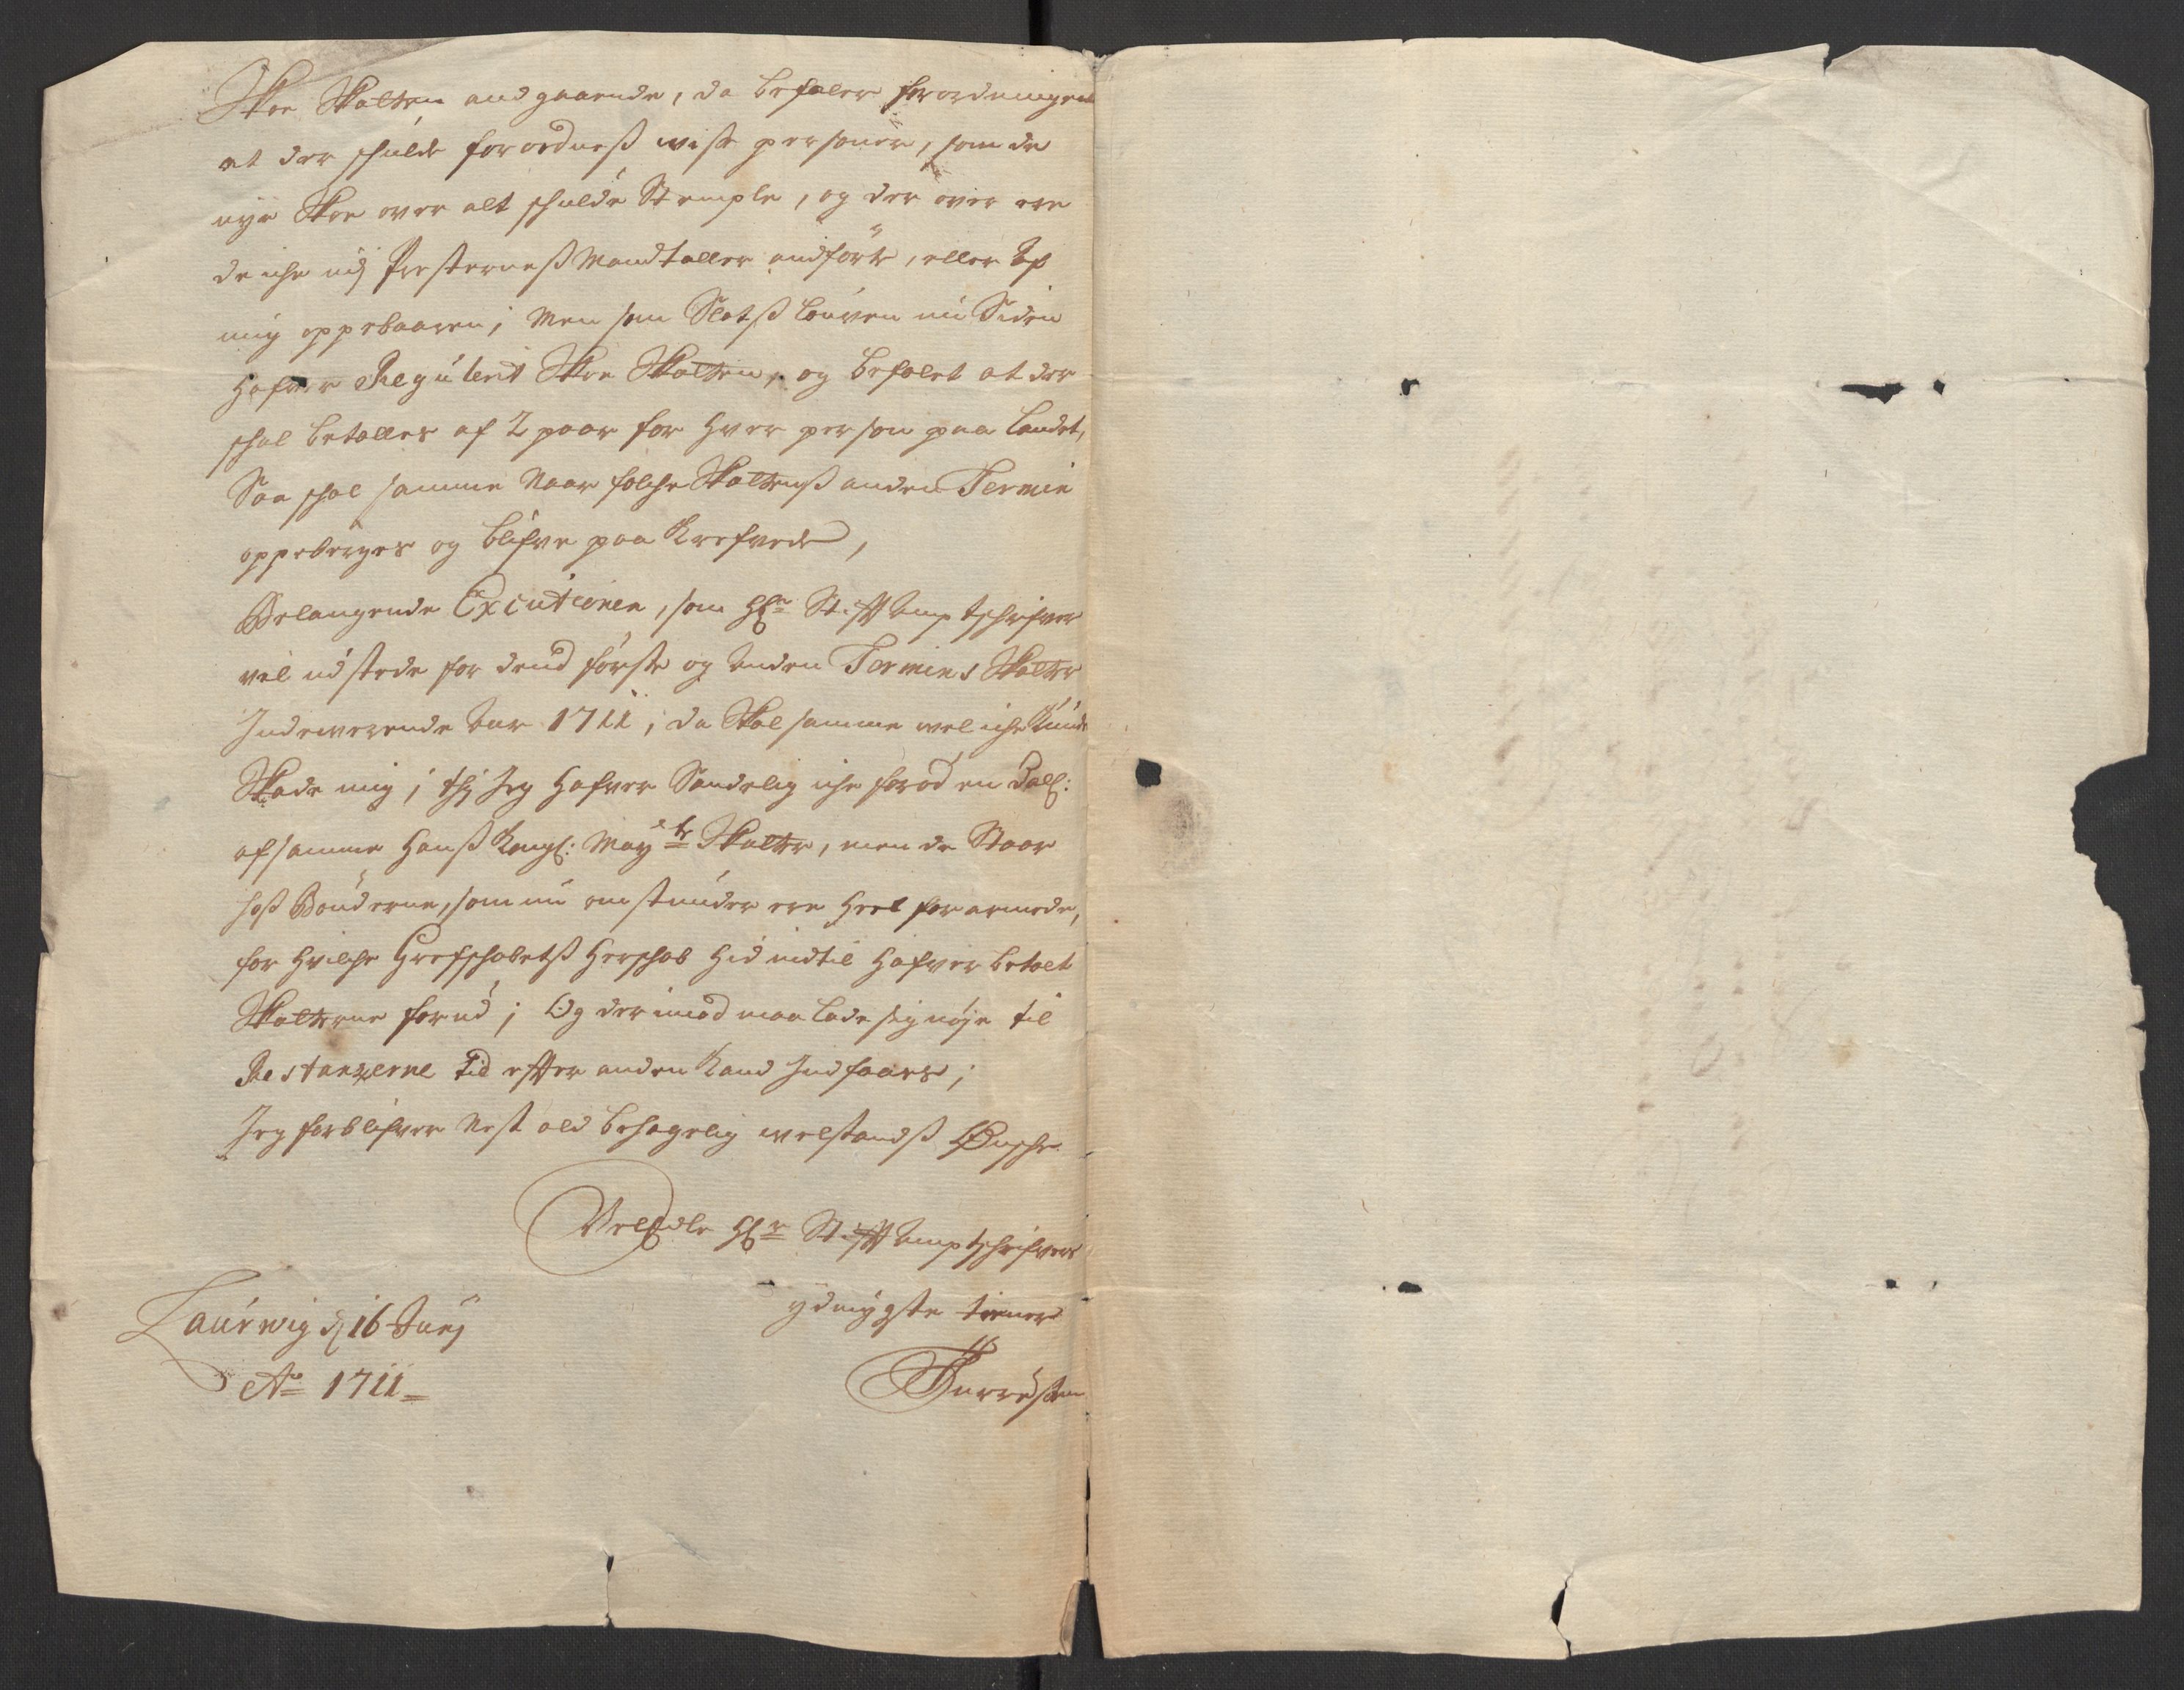 Skoe Skatten andgaaende, da befaler forordningen
at der schulde forordneß wisse personer, som de
nye Skoe over alt schulde Stemple, og der over ere
de iche udj Presterneß Mandtaller andført, eller af
mig oppebaaren; Men som Slotß Louven nu Siden
Hafver Regulerit Skoe Skatten, og befalet at der
schal betalles af 2 paar for hver person paa Landet,
Saa schal samme Naar folche Skattenß anden Termin
oppeberges og blifve paa Krefvede,
Belangende Excutionen, som Hr Stifft Amptschrifver
vil udstede for dend første og Anden Termins Skatter
Indewerende Aar 1711; da Skal samme vel iche Kunde
Skade mig; thj Jeg Hafver Sandelig iche forød en Dall:
af samme Hanß Kongl: Mayts Skatter, men de Staar
hoß Bønderne, som nu omstunder ere Heel forarmede,
for Hvilche Grefschabetß Herschab Hid indtil Hafver betalt
Skatterne forud; Og derimod maa lade sig nøje til
Restanzerne tid effter anden Kand Indfaaes;
Jeg forblifver Nest ald behagelig welstandß Ønsche
VelEdle Hr Stifft Amptschrifvers
ydmygste tiener
Laurwig d 16 Junj
Ao 1711